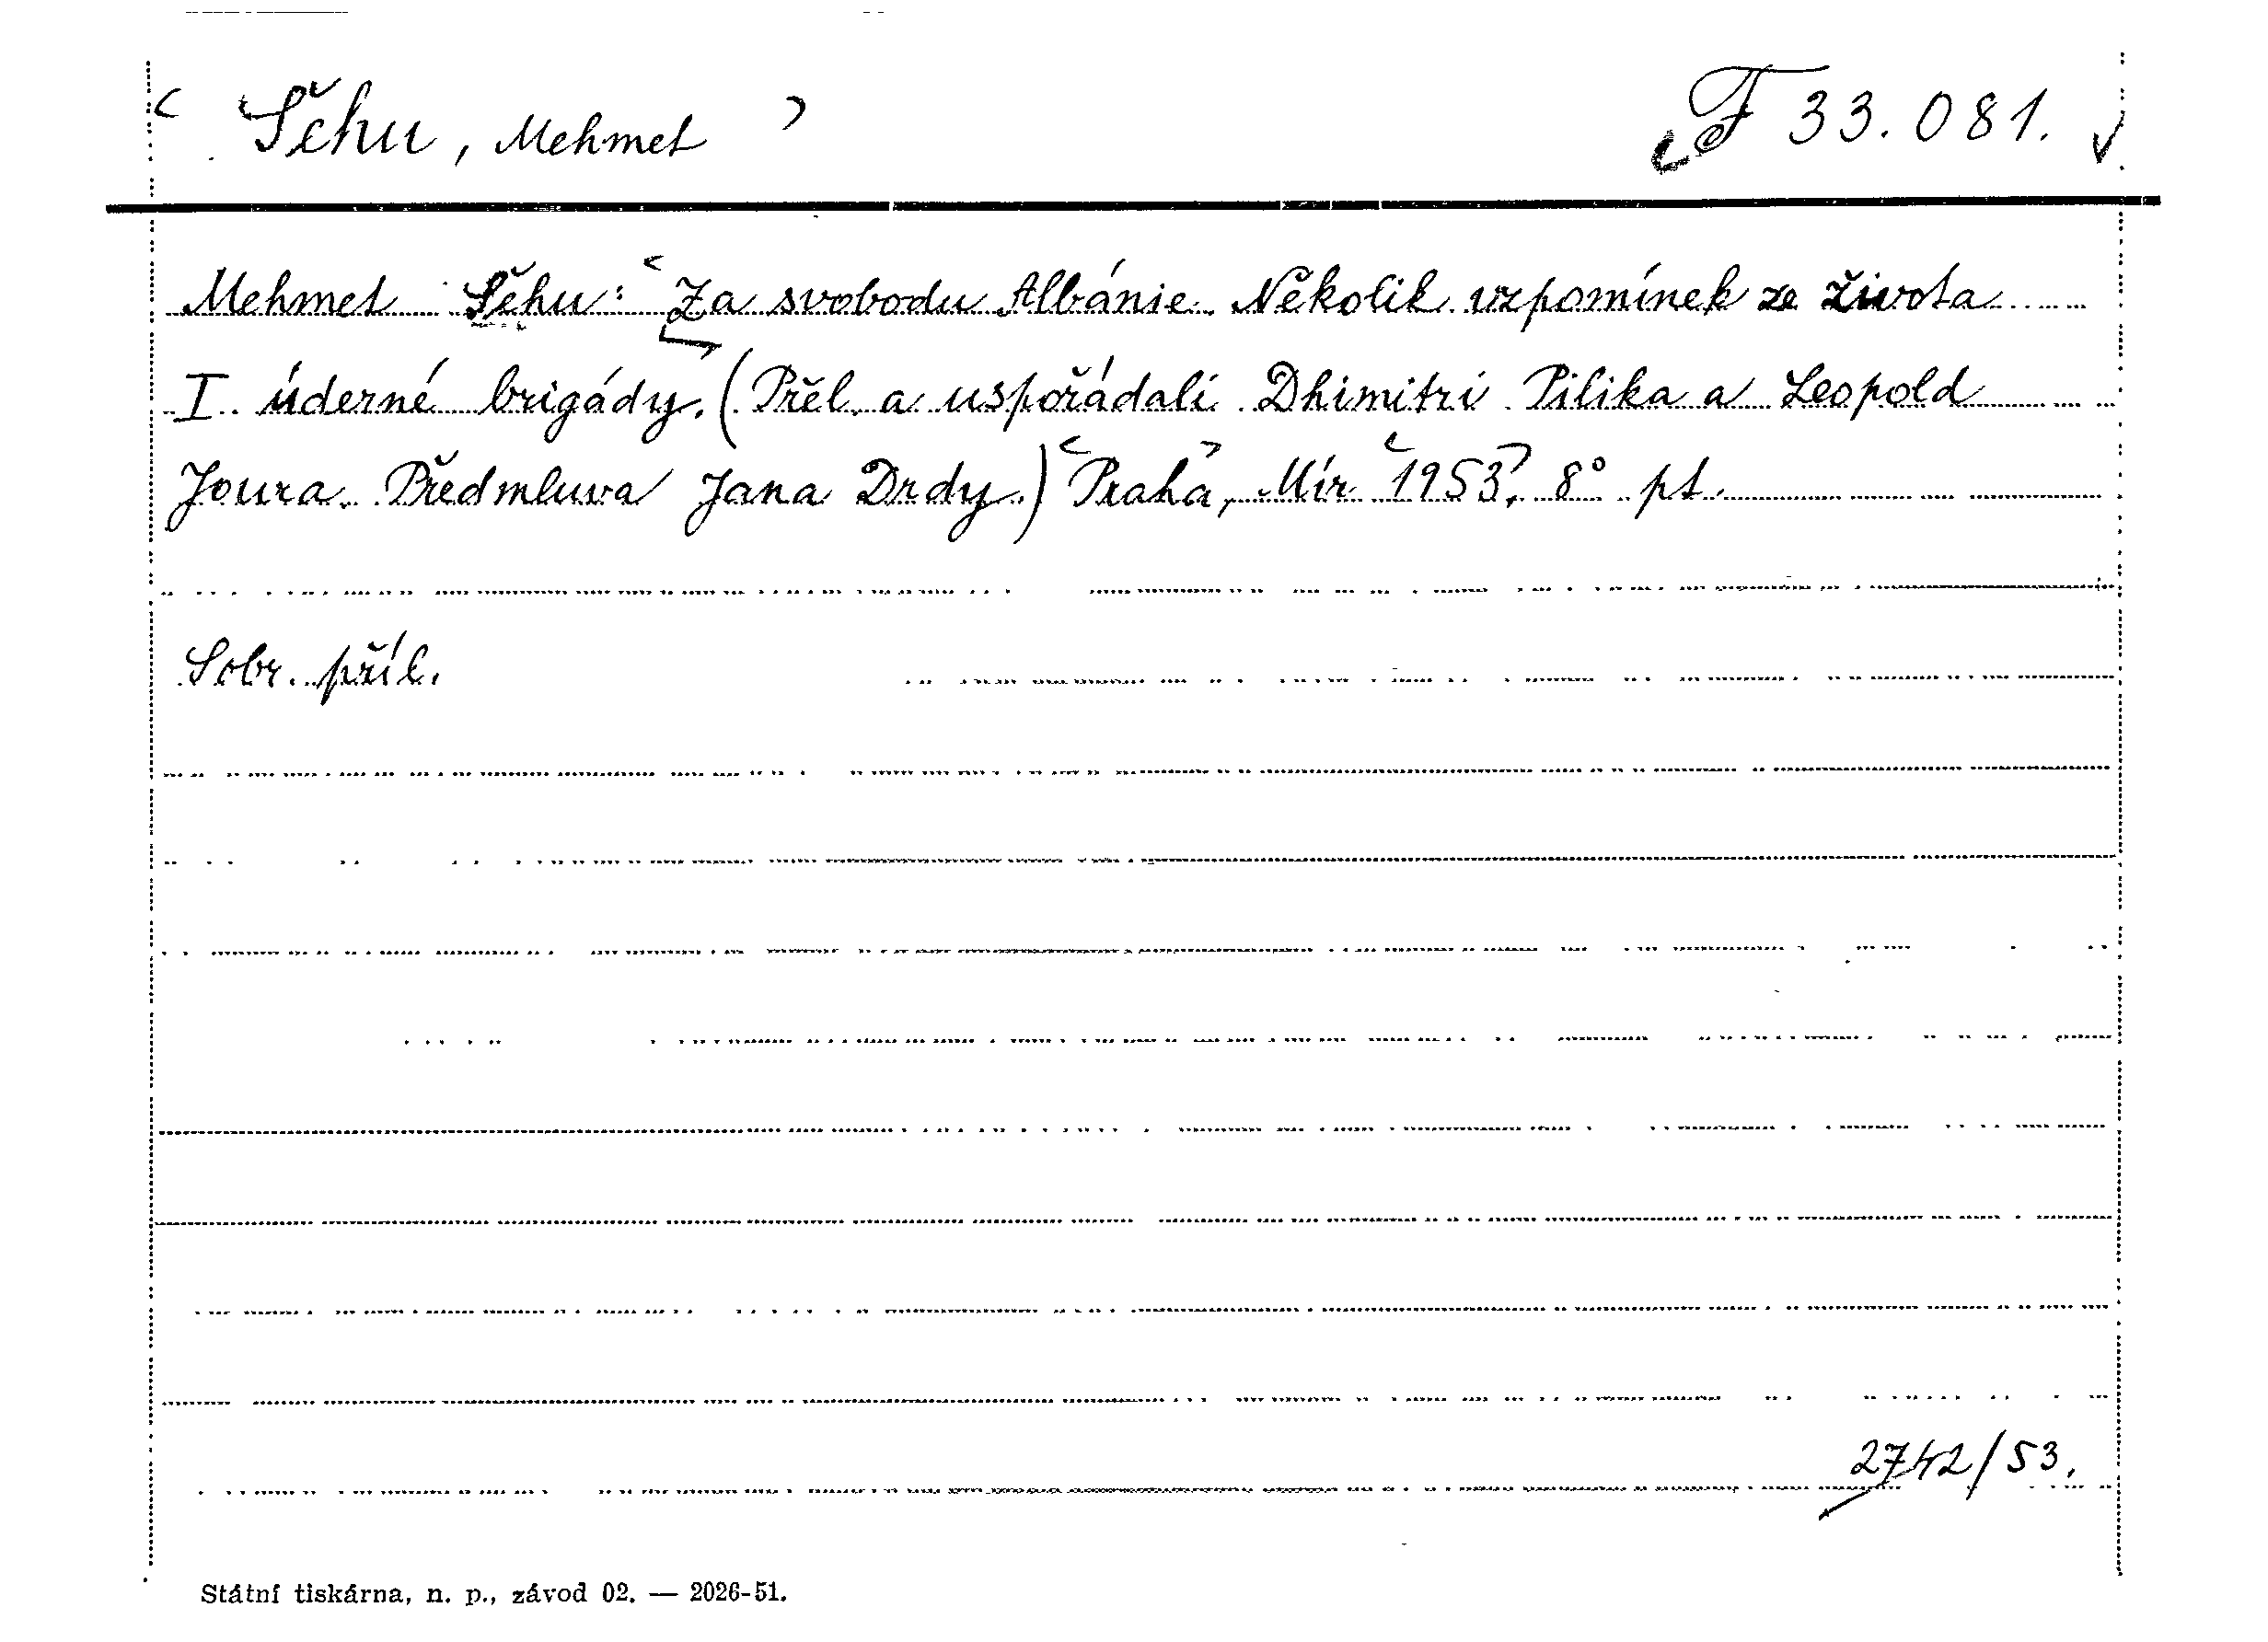 Šehu, Mehmet F 33.081.
Mehmet Šehu: Za svobodu Albánie. Několik vzpomínek ze života
I. úderné brigády. (Přel. a uspořádali Dhimitri Pilika a Leopold
Joura. Předmluva Jana Drdy.) Praha, Mír 1953. 8° pt.
Sobr. příl.
2742/53.
Státní tiskárna, n. p., závod 02. — 2026-51.